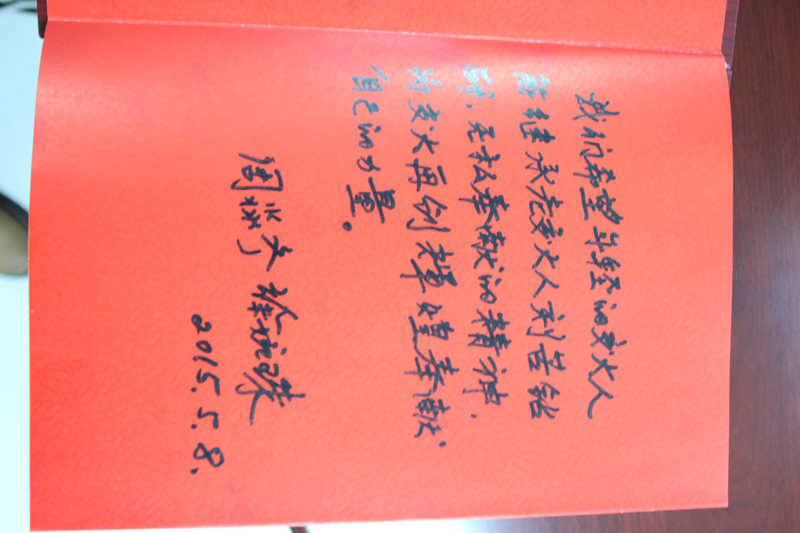 我们希望年轻的交大人
能继承老交大人刻苦钻
研、无私奉献的精神，
为交大再创辉煌奉献
自己的力量。
周
2015.5.8.